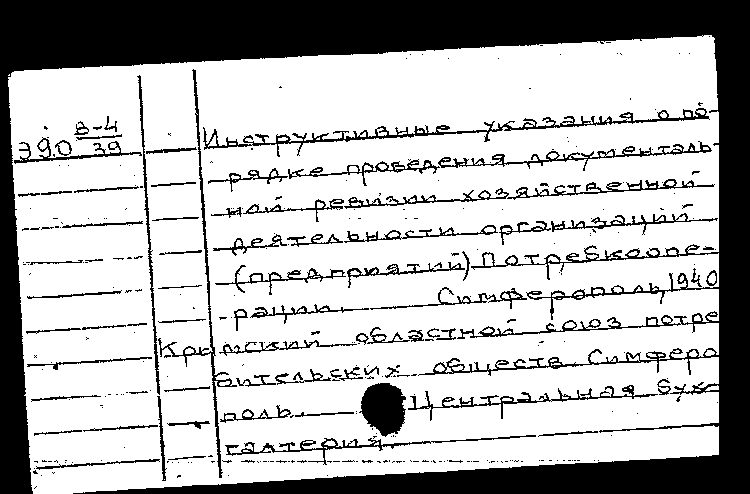 Э90 В-4/39
Инструктивные указания о по-
рядке проведения документаль-
ной ревизии хозяйственной
деятельности организаций
(предприятий) Потребкоопе-
рации. Симферополь, 1940
Крымский областной союз потре
бительских обществ. Симферо
поль. Центральная бух-
галтерия.